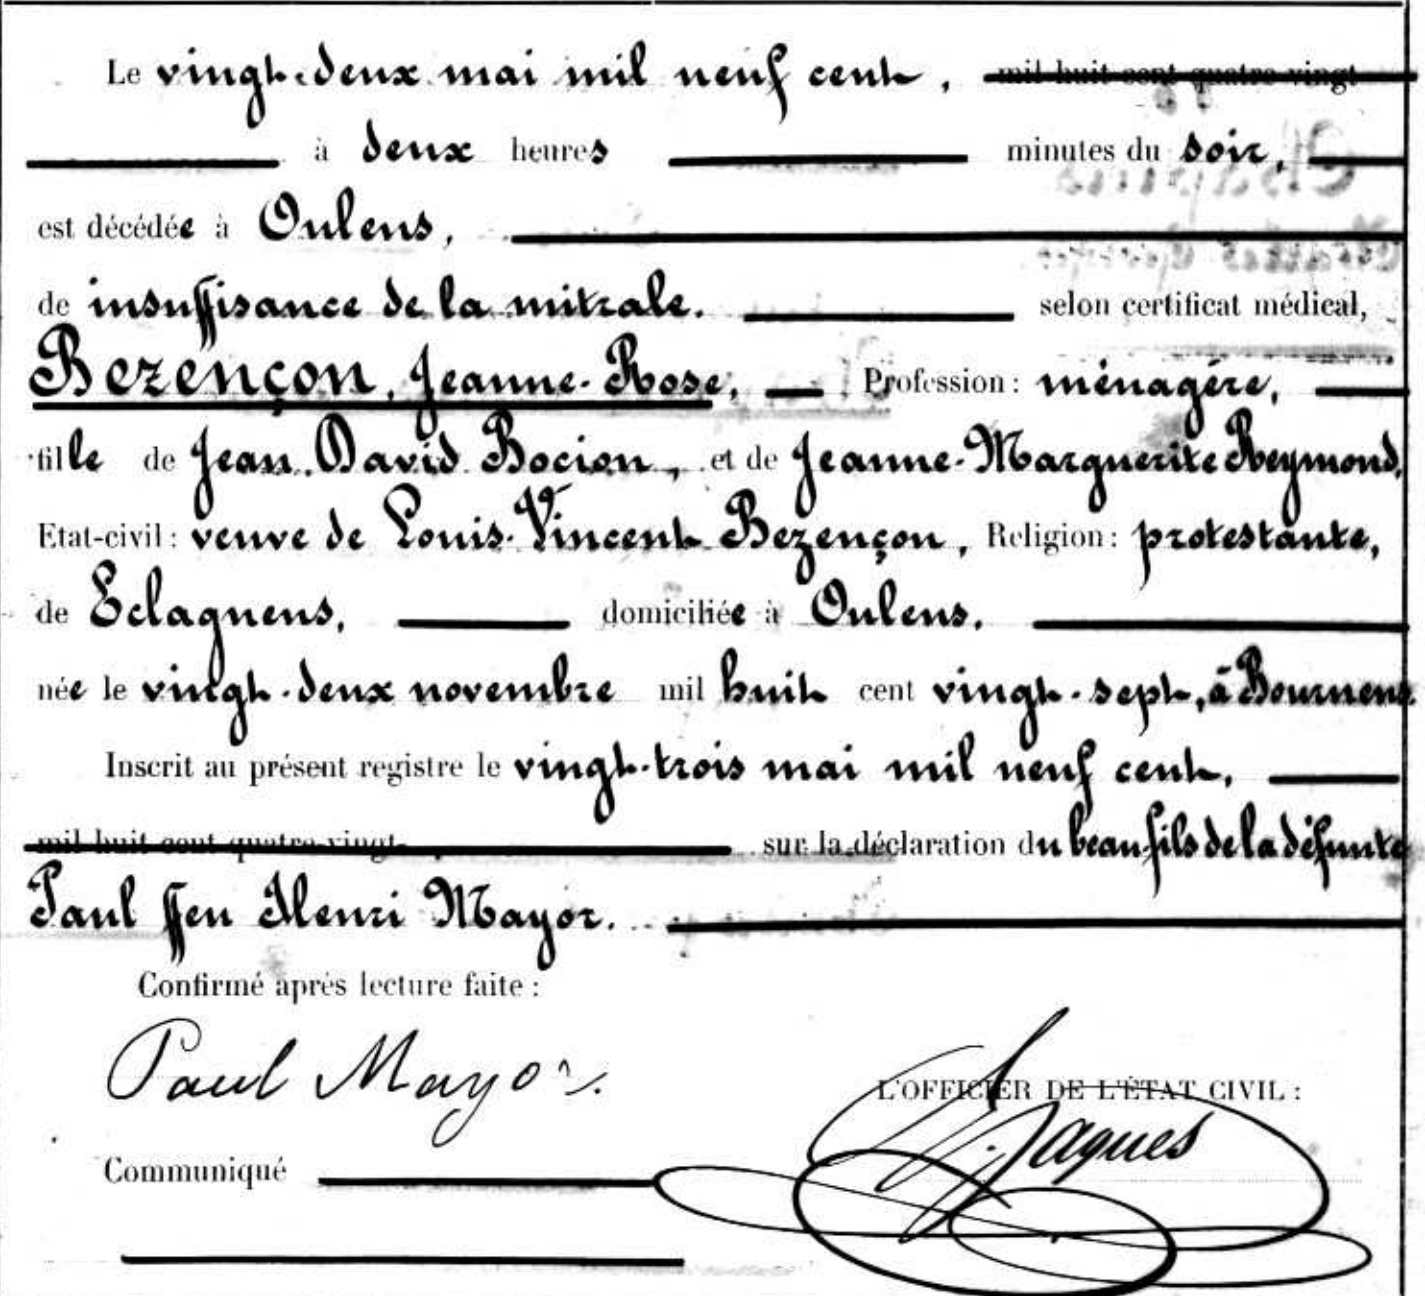 Le vingt-deux mai mil neuf cent, mil huit cent quatre-vingt
à deux heures minutes du soir,
est décédée à Oulens,
de insuffisance de la mitrale. selon certificat médical,
Bezençon, Jeanne-Rose, Profession : ménagère,
fille de Jean-David Bocion, et de Jeanne-Marguerite Reymond,
Etat-civil : veuve de Louis-Vincent Bezençon, Religion : protestante,
de Eclagnens, domiciliée à Oulens,
née le vingt-deux novembre mil huit cent vingt-sept, à Bournens.
Inscrit au présent registre le vingt-trois mai mil neuf cent,
mil huit cent quatre-vingt- sur la déclaration du beau-fils de la défunte
Paul ffeu Henri Mayor.
Confirmé après lecture faite :
Paul Mayor.
L'OFFICIER DE L'ÉTAT CIVIL :
Jaques
Communiqué